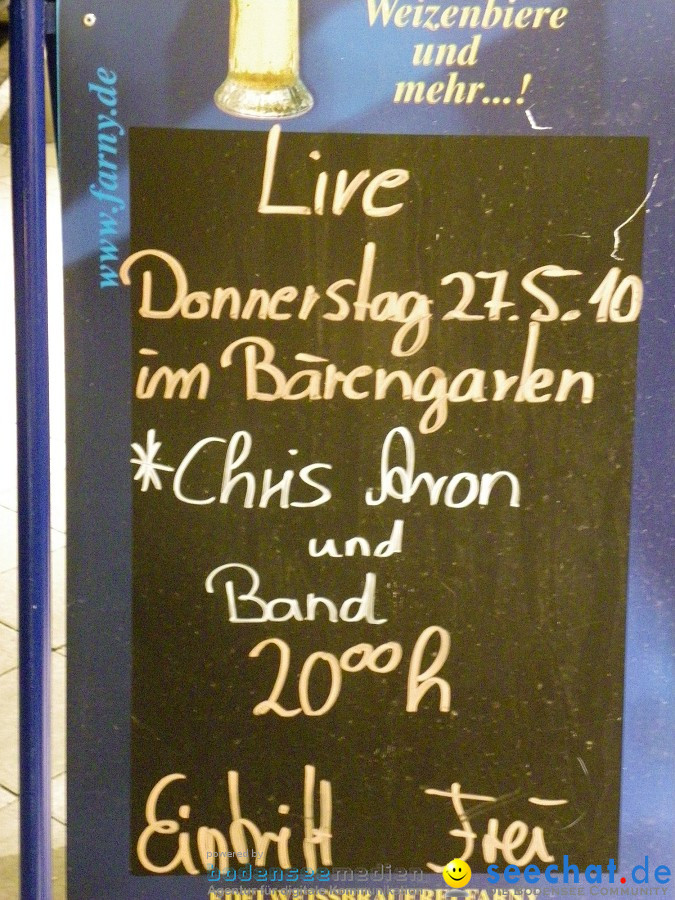 Weizenbiere
und
mehr...!
www.farny.de
Live
Donnerstag 27.5.10
im Bärengarten
*Chris Aron
und
Band
20 00 h
Eintritt Frei
powered by
bodenseemedien
Agentur für digitale Kommunikation
seechat.de
DIE BODENSEE COMMUNITY
EDELWEISSBRAUEREI FARNY